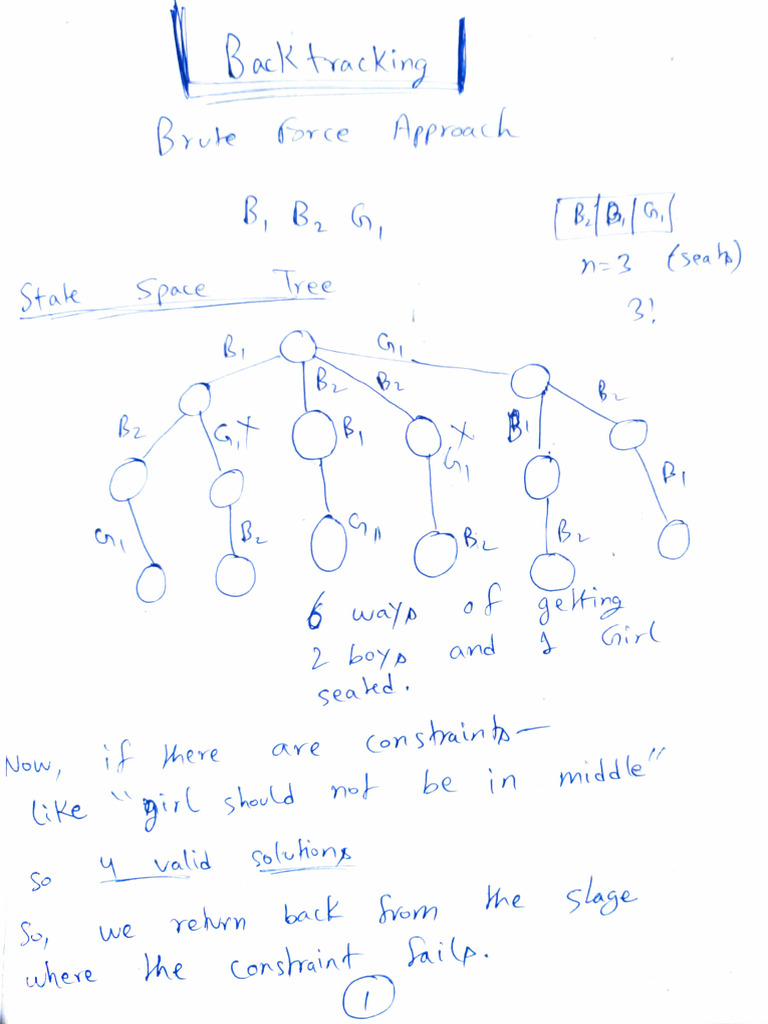 Backtracking
Brute Force Approach
B1 B2 G1
B2 | B1 | G1
n=3 (seats)
3!
State Space Tree
B1
G1
B2
B2
B2
B2
G1 X
B1
X
G1
B1
B1
G1
B2
G1
B2
B2
6 ways of getting
2 boys and 1 Girl
seated.
Now, if there are constraints—
like "girl should not be in middle"
so 4 valid solutions
So, we return back from the stage
where the constraint fails.
1